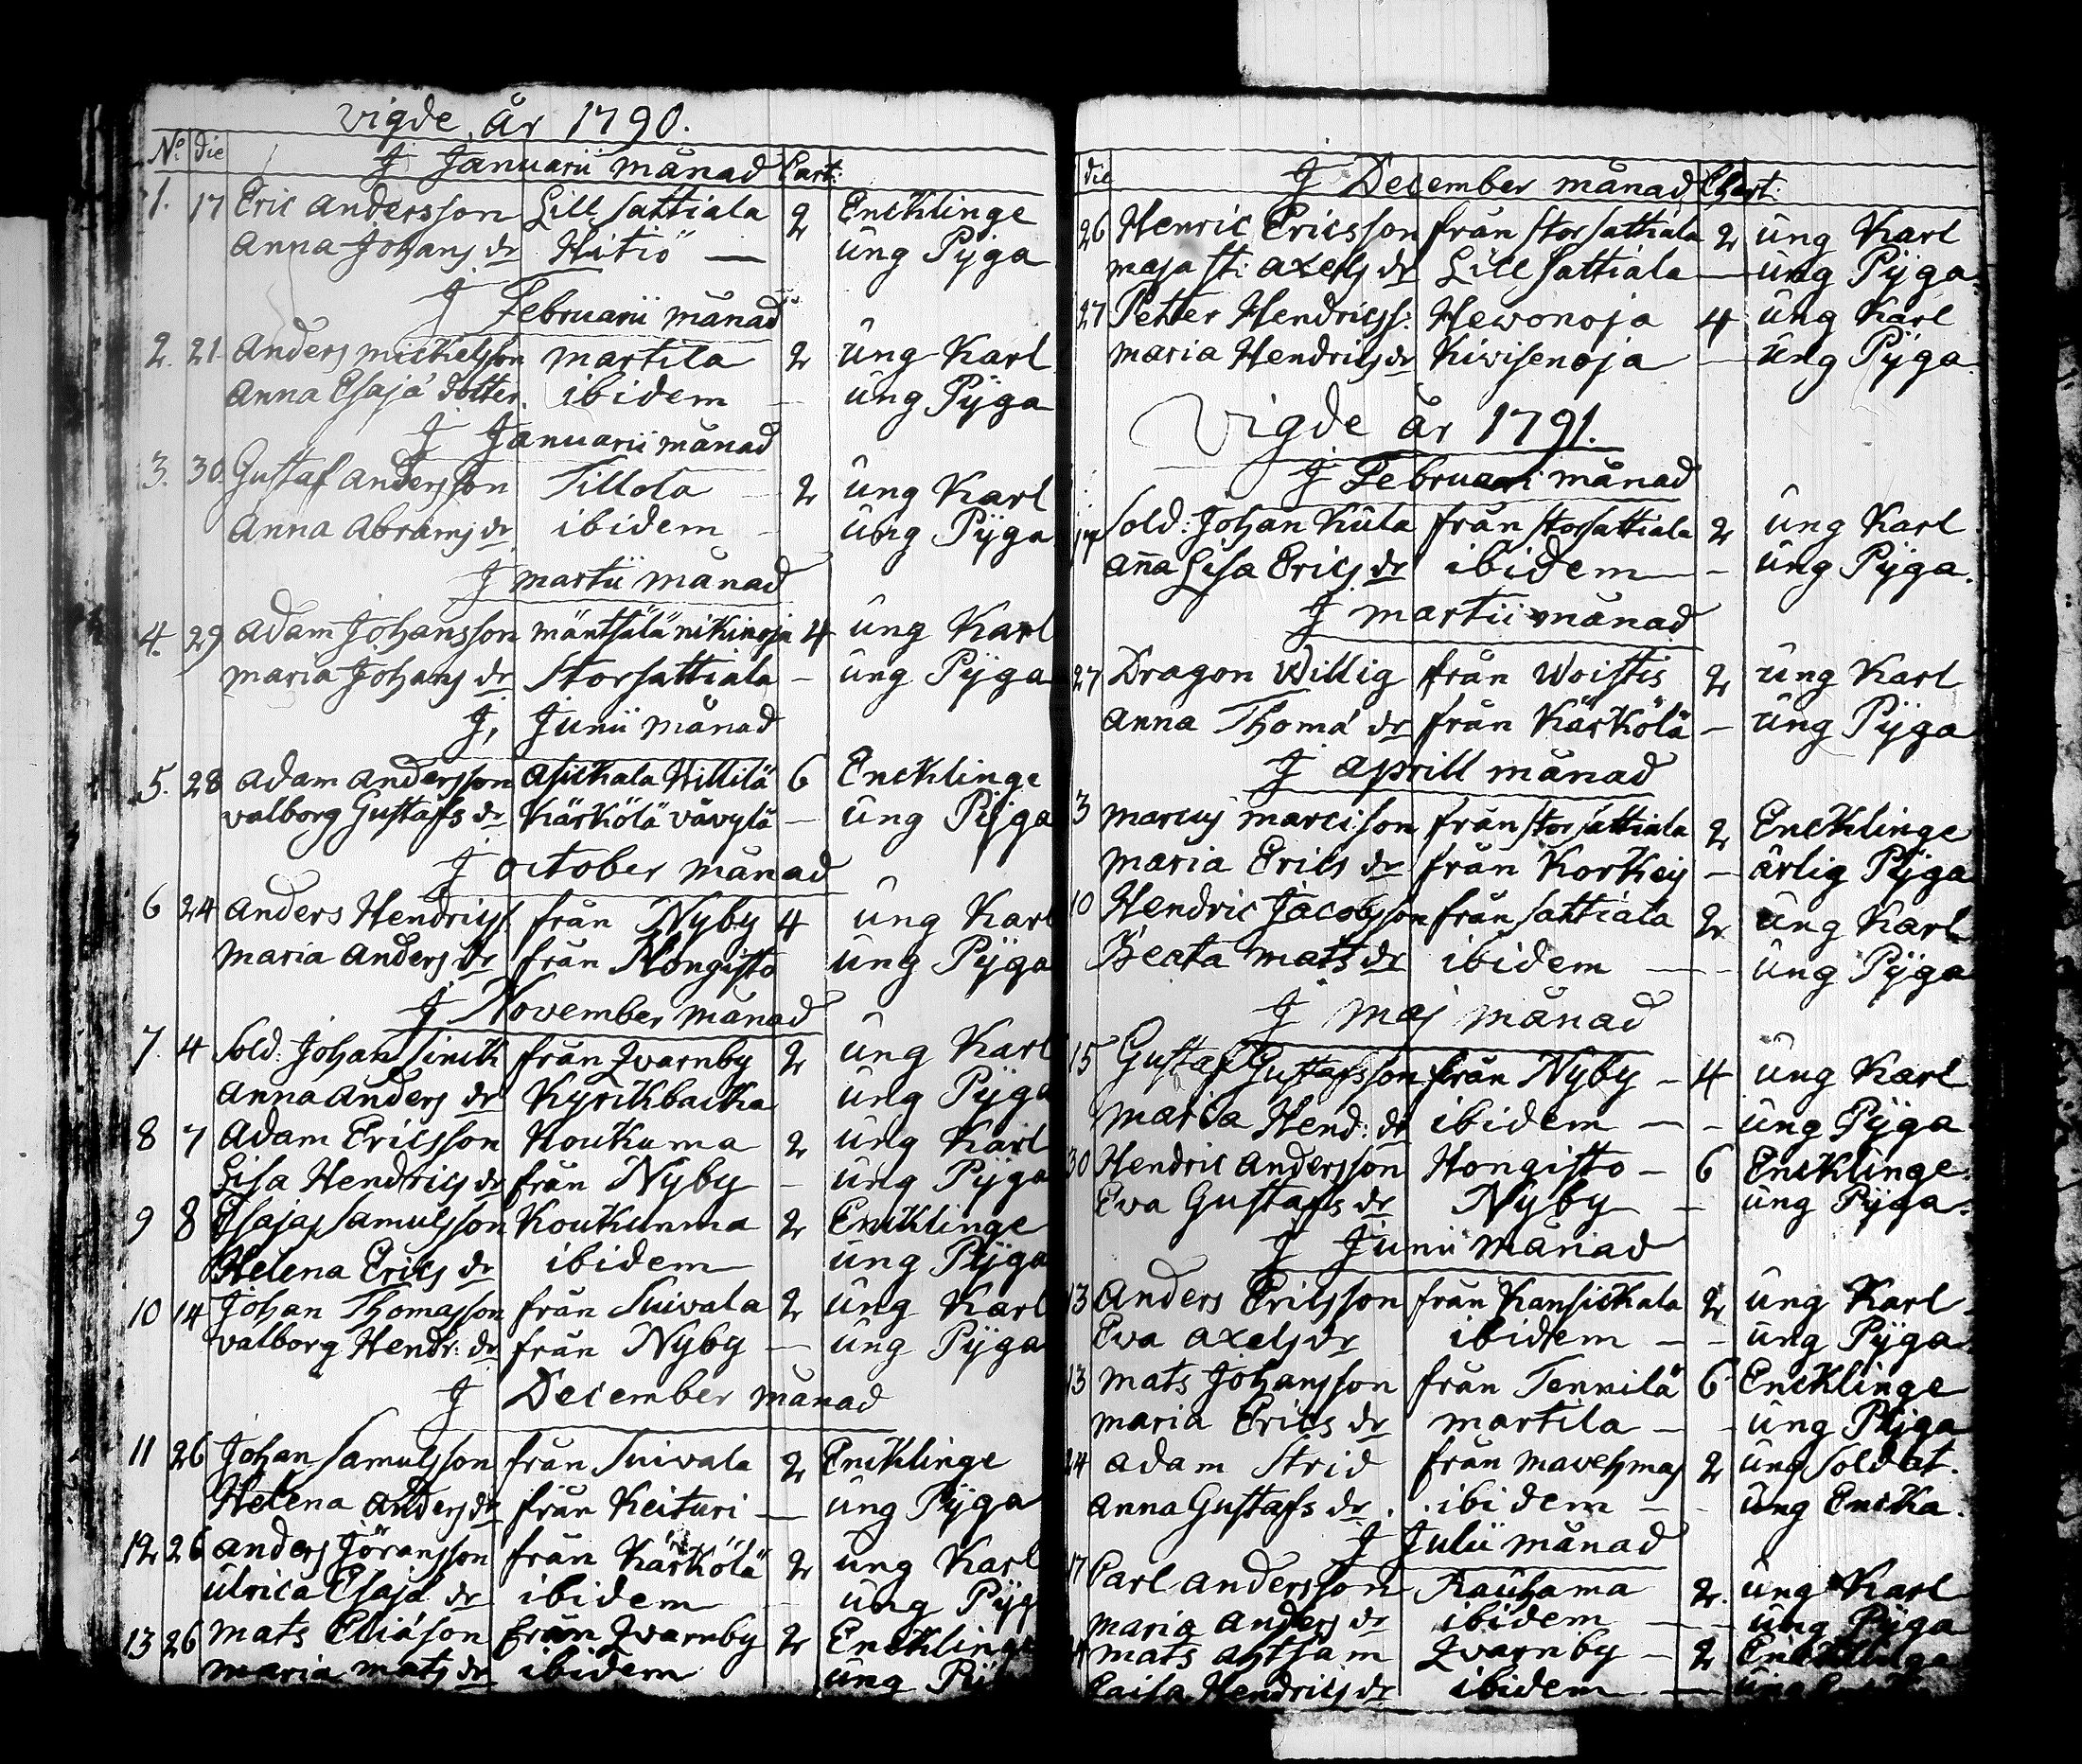 vigde år 1790.
No die J Januarii månad Cart:
1. 17 Eric Andersson Lill Sattiala 2 Encklinge
Anna Johans dr Hitiö — ung Pÿga
J Februarii månad
2. 21 Anders Mickelsson Martila 2 ung Karl
Anna Esajæ dotter ibidem — ung Pÿga
J Januarii månad
3. 30 Gustaf Andersson Tillola — 2 ung Karl
Anna Abrams dr ibidem - ung Pÿga
J Martii månad
4. 29 Adam Johansson Mäntsälä nikinoja 4 ung Karl
Maria Johans dr Storsattiala — ung Pÿga
J, Junii månad
5. 28 Adam Andersson Asickala Hillilä 6 Encklinge
Valborg Gustafs dr Kärkölä vävylä — ung Pÿga
J October månad
6 24 Anders Hendricss. från Nyby 4 ung Karl
Maria Anders dr från Hongisto ung Pÿga
J November månad
7. 4 Sold: Johan Sinck från Qvarnby 2 ung Karl
Anna Anders dr Kyrckbacka ung Pÿga
8 7 Adam Ericsson Koukuma 2 ung Karl
Lisa Hendrics dr från Nyby — ung Pÿga
9 8 Esajas Samulsson Koukunma 2 Encklinge
Helena Erics dr ibidem ung Pÿga
10 14 Johan Thomasson från Suivala 2 ung Karl
Valborg Hendr: dr från Nyby — ung Pÿga
J December månad
11 26 Johan Samulsson från Suivala 2 Encklinge
Helena Anders dr från Keituri — ung Pÿga
12 26 Anders Jöransson från Kärkölä 2 ung Karl
Ulrica Esajæ dr ibidem ung Pÿg
13 26 Mats Eliæson från Qvarnby 2 Encklinge
Maria Mats dr ibidem ung Pÿ
die J December månad Chart:
26 Henric Ericsson från Storsattiala 2 ung Karl
Maja St: Axels dr Lill Sattiala — ung Pÿga
27 Petter Hendricss: Hewonoja 4 ung Karl
Maria Hendrics dr Kiwisenoja — ung Pÿga
Vigde år 1791.
J Februari månad
Sold: Johan Kula från Storsattiala 2 ung Karl
Anna Lisa Erics dr ibidem — ung Pÿga.
J Martii månad
27 Dragon Willig från Woistis 2 ung Karl
Anna Thomæ dr från Kärkölä — ung Pÿga
J Aprill månad
3 Marcus Marcison från Storsattiala 2 Encklinge
Maria Erics dr från Korkeis — ärlig Pÿga
10 Hendric Jacobsson från Sattiala 2 ung Karl
Beata Mats dr ibidem — ung Pÿga
J Maj månad
15 Gustaf Gustafsson från Nyby — 4 ung Karl
Maria Hend: dr ibidem — ung Pÿga
30 Hendric Andersson Hongisto — 6 Encklinge.
Eva Gustafs dr Nyby — ung Pÿga.
J Junii månad
13 Anders Ericsson från Kansickala 2 ung Karl
Eva Axels dr ibidem — ung Pÿga
13 Mats Johansson från Tennilä 6 Encklinge
Maria Erics dr Martila — ung Pÿga
24 Adam Strid från 2 ung Soldat.
Anna Gustafs dr. ibidem — ung Encka.
J Julii månad
17 Carl Andersson Kauhama 2. ung Karl
Maria Anders dr ibidem — ung Pÿga
Mats Qvarnby — 2 Encklinge
Caisa Hendrics dr ibidem —